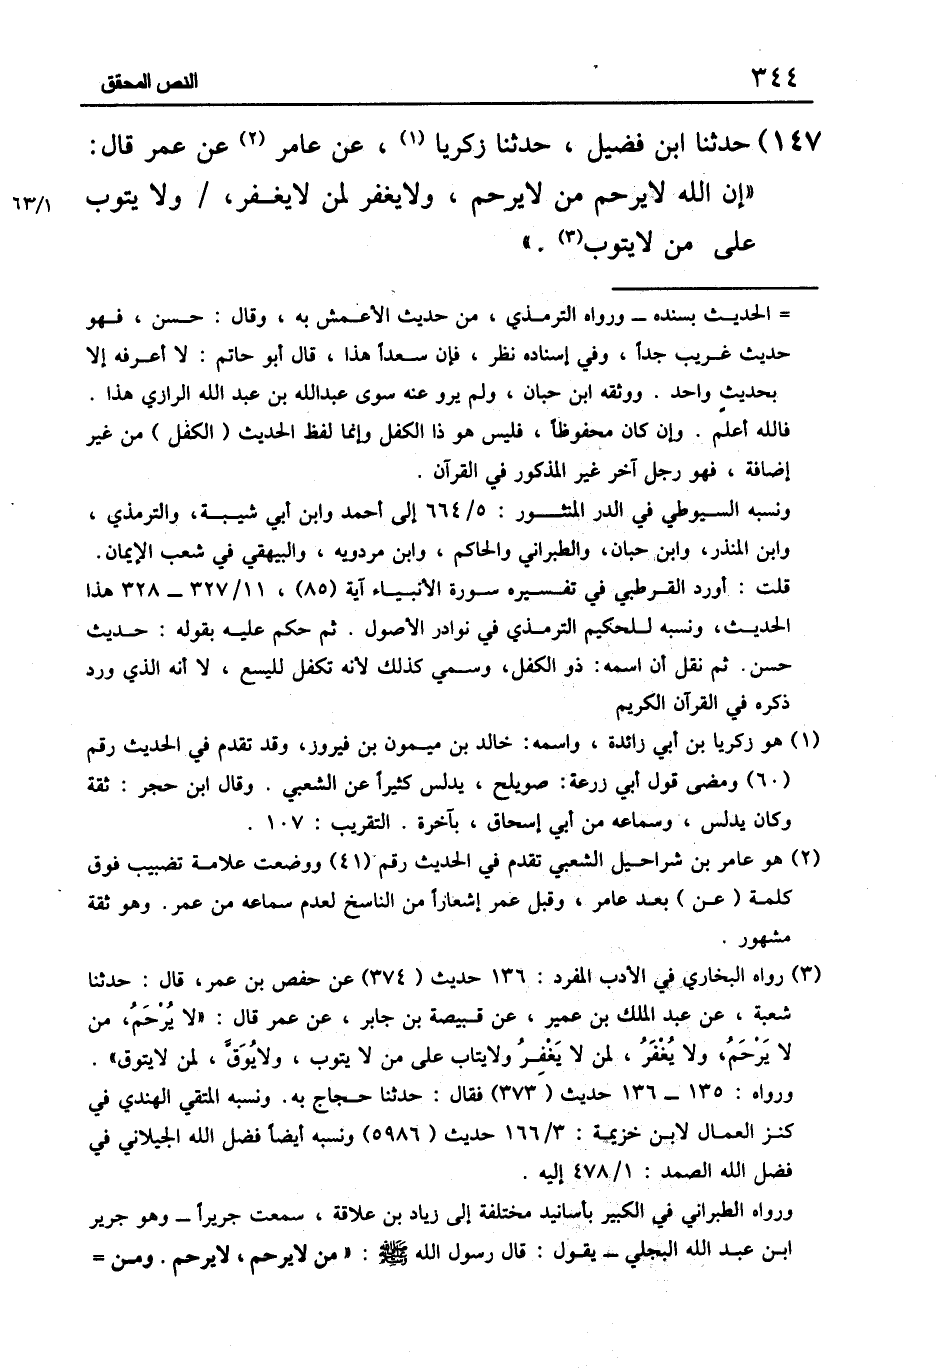 ٣٤٤ النص المحقق
١٤٧) حدثنا ابن فضيل ، حدثنا زكريا (١) ، عن عامر (٢) عن عمر قال :
«إن الله لايرحم من لايرحم ، ولايغفر لمن لايغـفر، / ولا يتوب ٦٣/١
على من لايتوب(٣) .»
= الحديث بسنده ــ ورواه الترمذي ، من حديث الأعمش به ، وقال : حسن ، فهو
حديث غريب جداً ، وفي إسناده نظر ، فإن سعداً هذا ، قال أبو حاتم : لا أعرفه إلا
بحديث واحد . ووثقه ابن حبان ، ولم يرو عنه سوى عبدالله بن عبد الله الرازي هذا .
فالله أعلم . وإن كان محفوظاً ، فليس هو ذا الكفل وإنما لفظ الحديث ( الكفل ) من غير
إضافة ، فهو رجل آخر غير المذكور في القرآن .
ونسبه السيوطي في الدر المنثور : ٦٦٤/٥ إلى أحمد وابن أبي شيبة، والترمذي ،
وابن المنذر، وابن حبان، والطبراني والحاكم ، وابن مردويه ، والبيهقي في شعب الإيمان.
قلت : أورد القرطبي في تفسيره سورة الأنبياء آية (٨٥) ، ٣٢٧/١١ ــ ٣٢٨ هذا
الحديث، ونسبه للحكيم الترمذي في نوادر الأصول . ثم حكم عليه بقوله : حديث
حسن. ثم نقل أن اسمه: ذو الكفل، وسمي كذلك لأنه تكفل لليسع ، لا أنه الذي ورد
ذكره في القرآن الكريم
(١) هو زكريا بن أبي زائدة ، واسمه: خالد بن ميمون بن فيروز، وقد تقدم في الحديث رقم
(٦٠) ومضى قول أبي زرعة: صويلح ، يدلس كثيراً عن الشعبي . وقال ابن حجر : ثقة
وكان يدلس ، وسماعه من أبي إسحاق ، بآخرة . التقريب : ١٠٧ .
(٢) هو عامر بن شراحيل الشعبي تقدم في الحديث رقم (٤١) ووضعت علامة تضبيب فوق
كلمة ( عن ) بعد عامر ، وقبل عمر إشعاراً من الناسخ لعدم سماعه من عمر. وهو ثقة
مشهور .
(٣) رواه البخاري في الأدب المفرد : ١٣٦ حديث ( ٣٧٤) عن حفص بن عمر، قال : حدثنا
شعبة ، عن عبد الملك بن عمير ، عن قبيصة بن جابر ، عن عمر قال : «لا يُرْحَمُ، من
لا يَرْحَمُ، ولا يُغْفَرُ ، لمن لا يَغْفِرُ ولايتاب على من لا يتوب ، ولايُوَقَّ ، لمن لايتوق» .
ورواه : ١٣٥ ــ ١٣٦ حديث ( ٣٧٣) فقال : حدثنا حجاج به. ونسبه المتقي الهندي في
كنز العمال لابن خزيمة : ١٦٦/٣ حديث ( ٥٩٨٦) ونسبه أيضاً فضل الله الجيلاني في
فضل الله الصمد : ٤٧٨/١ إليه .
ورواه الطبراني في الكبير بأسانيد مختلفة إلى زياد بن علاقة ، سمعت جريراً ــ وهو جرير
ابن عبد الله البجلي ــ يقول : قال رسول الله ﷺ : « من لايرحم ، لايرحم . ومن =